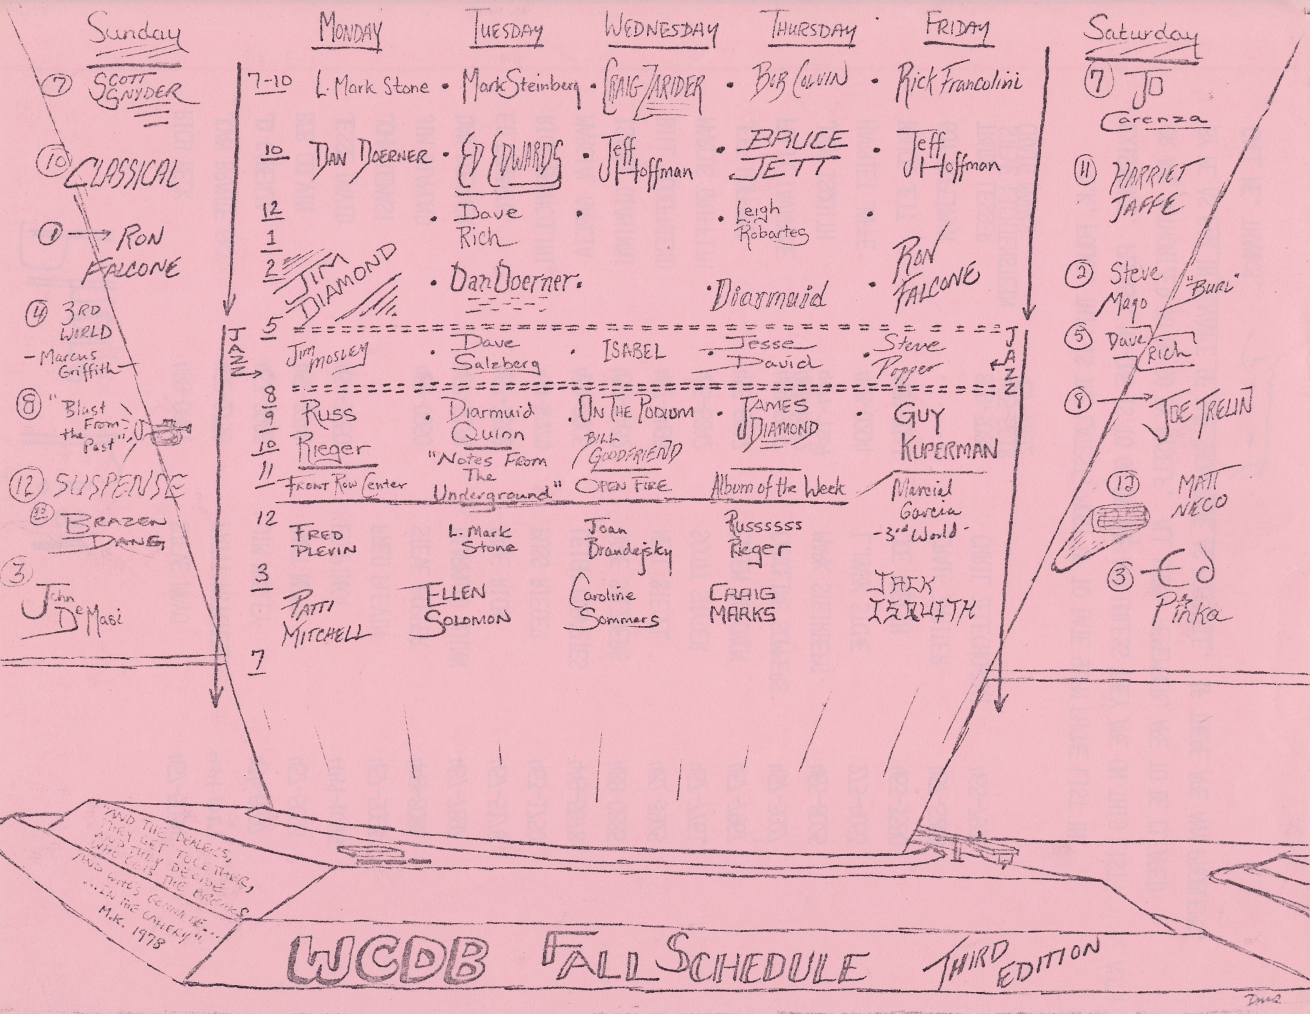 Sunday MONDAY TUESDAY WEDNESDAY THURSDAY FRIDAY Saturday
7 SCOTT SNYDER
10 CLASSICAL
1 RON FALCONE
4 3RD WORLD
- Marcus Griffith -
8 "Blast From the Past"
12 SUSPENSE
BRAZEN DANG
3 John DeMasi
7-10 L. Mark Stone • Mark Steinberg • CRAIG ZARIDER • BOB COLVIN • Rick Francolini
10 DAN DOERNER • ED EDWARDS • Jeff Hoffman • BRUCE JETT • Jeff Hoffman
12 • Dave Rich • • Leigh Robartes •
1
2 JIM DIAMOND • Dan Doerner • • Diarmuid • RON FALCONE
5
JAZZ Jim MOSLEY • Dave Salzberg • ISABEL • Jesse David • Steve Popper JAZZ
8
9 RUSS • Diarmuid • ON THE PODIUM • JAMES • GUY
10 Rieger Quinn BILL GOODFRIEND DIAMOND KUPERMAN
11 FRONT ROW Center "Notes From The Underground" OPEN FIRE Album of the Week Marcial Garcia
-3rd World-
12 FRED PLEVIN L. Mark Stone Joan Brandejsky Russssss Rieger
3 PATTI MITCHELL ELLEN SOLOMON Caroline Sommers CRAIG MARKS JACK ISQUITH
7
7 JO Carenza
11 HARRIET JAFFE
2 Steve Mago "Burl"
5 Dave Rich
8 JOE TRELIN
12 MATT NECO
3 Ed Pinka
"AND THE DEALERS,
THEY GET TOGETHER,
AND THEY DECIDE
WHO GETS THE BREAKS
AND WHO'S GONNA BE...
...IN THE GALLERY"
M.K. 1978
WCDB FALL SCHEDULE THIRD EDITION